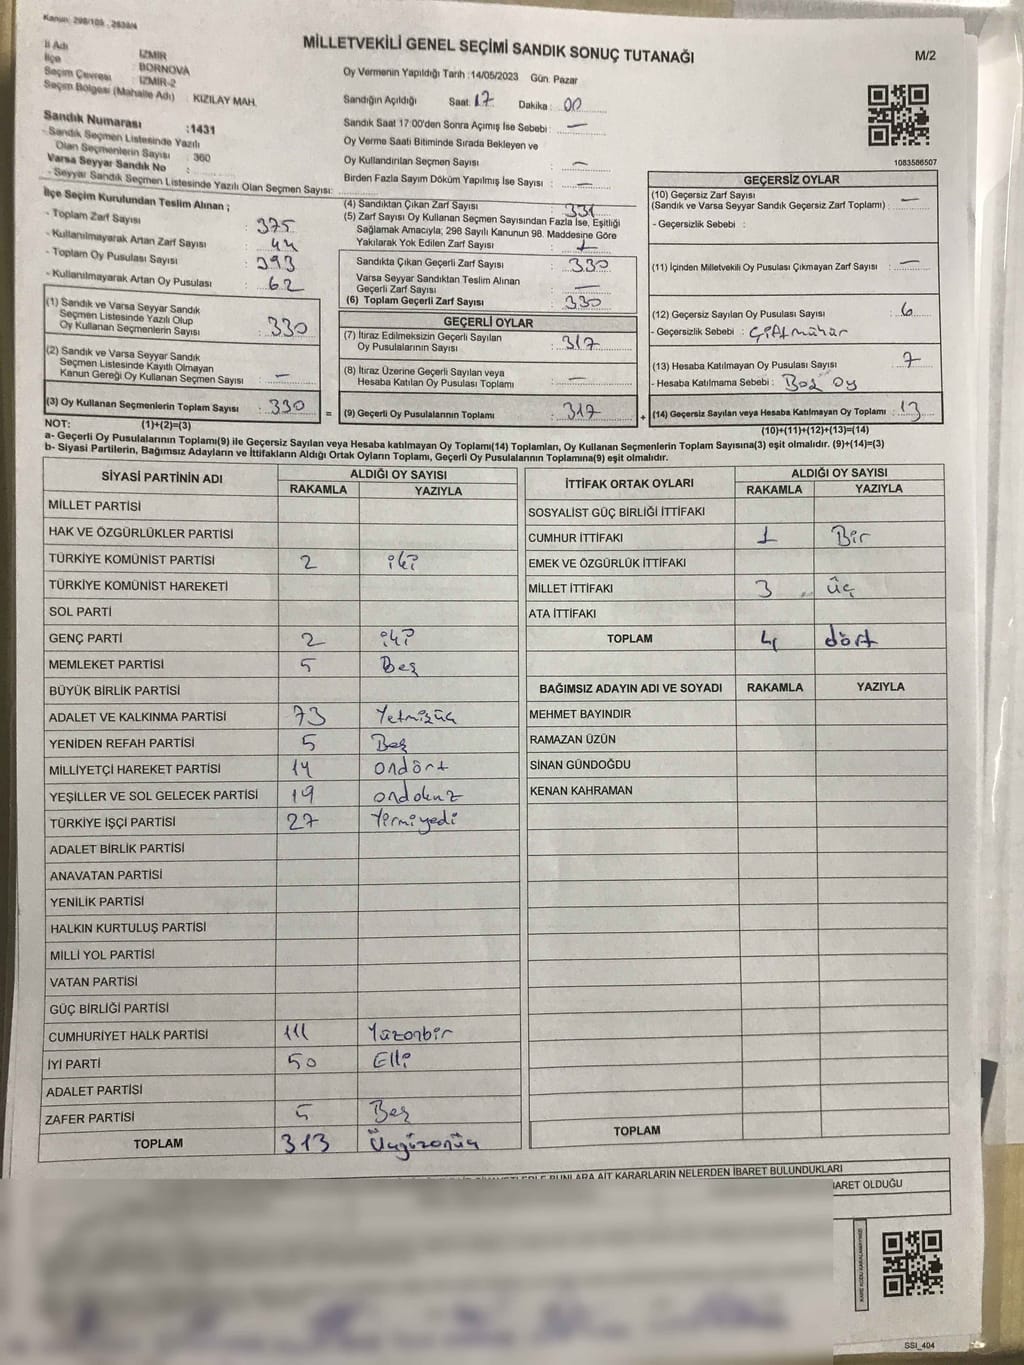 Kanun: 298/105 , 2839/4
MİLLETVEKİLİ GENEL SEÇİMİ SANDIK SONUÇ TUTANAĞI
M/2
İl Adı : İZMİR
İlçe : BORNOVA
Seçim Çevresi : İZMİR-2
Seçim Bölgesi (Mahalle Adı) : KIZILAY MAH.
Sandık Numarası : 1431
- Sandık Seçmen Listesinde Yazılı
Olan Seçmenlerin Sayısı : 360
Varsa Seyyar Sandık No :
- Seyyar Sandık Seçmen Listesinde Yazılı Olan Seçmen Sayısı:
Oy Vermenin Yapıldığı Tarih : 14/05/2023 Gün: Pazar
Sandığın Açıldığı Saat: 17 Dakika : 00
Sandık Saat 17:00'den Sonra Açımış İse Sebebi : —
Oy Verme Saati Bitiminde Sırada Bekleyen ve
Oy Kullandırılan Seçmen Sayısı : —
Birden Fazla Sayım Döküm Yapılmış İse Sayısı : —
1083586507
İlçe Seçim Kurulundan Teslim Alınan ;
- Toplam Zarf Sayısı : 375
- Kullanılmayarak Artan Zarf Sayısı : 44
- Toplam Oy Pusulası Sayısı : 393
- Kullanılmayarak Artan Oy Pusulası : 62
(1) Sandık ve Varsa Seyyar Sandık
Seçmen Listesinde Yazılı Olup
Oy Kullanan Seçmenlerin Sayısı : 330
(2) Sandık ve Varsa Seyyar Sandık
Seçmen Listesinde Kayıtlı Olmayan
Kanun Gereği Oy Kullanan Seçmen Sayısı : —
(3) Oy Kullanan Seçmenlerin Toplam Sayısı : 330 =
(4) Sandıktan Çıkan Zarf Sayısı : 331
(5) Zarf Sayısı Oy Kullanan Seçmen Sayısından Fazla İse, Eşitliği
Sağlamak Amacıyla; 298 Sayılı Kanunun 98. Maddesine Göre
Yakılarak Yok Edilen Zarf Sayısı : 1
Sandıkta Çıkan Geçerli Zarf Sayısı : 330
Varsa Seyyar Sandıktan Teslim Alınan
Geçerli Zarf Sayısı : —
(6) Toplam Geçerli Zarf Sayısı : 330
GEÇERLİ OYLAR
(7) İtiraz Edilmeksizin Geçerli Sayılan
Oy Pusulalarının Sayısı : 317
(8) İtiraz Üzerine Geçerli Sayılan veya
Hesaba Katılan Oy Pusulası Toplamı : —
(9) Geçerli Oy Pusulalarının Toplamı : 317 +
GEÇERSİZ OYLAR
(10) Geçersiz Zarf Sayısı
(Sandık ve Varsa Seyyar Sandık Geçersiz Zarf Toplamı) : —
- Geçersizlik Sebebi :
(11) İçinden Milletvekili Oy Pusulası Çıkmayan Zarf Sayısı : —
(12) Geçersiz Sayılan Oy Pusulası Sayısı : 6
- Geçersizlik Sebebi : Çift mühür
(13) Hesaba Katılmayan Oy Pusulası Sayısı : 7
- Hesaba Katılmama Sebebi : Boş Oy
(14) Geçersiz Sayılan veya Hesaba Katılmayan Oy Toplamı : 13
NOT: (1)+(2)=(3)
(10)+(11)+(12)+(13)=(14)
a- Geçerli Oy Pusulalarının Toplamı(9) ile Geçersiz Sayılan veya Hesaba katılmayan Oy Toplamı(14) Toplamları, Oy Kullanan Seçmenlerin Toplam Sayısına(3) eşit olmalıdır. (9)+(14)=(3)
b- Siyasi Partilerin, Bağımsız Adayların ve İttifakların Aldığı Ortak Oyların Toplamı, Geçerli Oy Pusulalarının Toplamına(9) eşit olmalıdır.
SİYASİ PARTİNİN ADI ALDIĞI OY SAYISI
RAKAMLA YAZIYLA
MİLLET PARTİSİ
HAK VE ÖZGÜRLÜKLER PARTİSİ
TÜRKİYE KOMÜNİST PARTİSİ 2 iki
TÜRKİYE KOMÜNİST HAREKETİ
SOL PARTİ
GENÇ PARTİ 2 iki
MEMLEKET PARTİSİ 5 Beş
BÜYÜK BİRLİK PARTİSİ
ADALET VE KALKINMA PARTİSİ 73 Yetmişüç
YENİDEN REFAH PARTİSİ 5 Beş
MİLLİYETÇİ HAREKET PARTİSİ 14 ondört
YEŞİLLER VE SOL GELECEK PARTİSİ 19 ondokuz
TÜRKİYE İŞÇİ PARTİSİ 27 Yirmiyedi
ADALET BİRLİK PARTİSİ
ANAVATAN PARTİSİ
YENİLİK PARTİSİ
HALKIN KURTULUŞ PARTİSİ
MİLLİ YOL PARTİSİ
VATAN PARTİSİ
GÜÇ BİRLİĞİ PARTİSİ
CUMHURİYET HALK PARTİSİ 111 Yüzonbir
İYİ PARTİ 50 Elli
ADALET PARTİSİ
ZAFER PARTİSİ 5 Beş
TOPLAM 313 Üçyüzonüç
İTTİFAK ORTAK OYLARI ALDIĞI OY SAYISI
RAKAMLA YAZIYLA
SOSYALİST GÜÇ BİRLİĞİ İTTİFAKI
CUMHUR İTTİFAKI 1 Bir
EMEK VE ÖZGÜRLÜK İTTİFAKI
MİLLET İTTİFAKI 3 üç
ATA İTTİFAKI
TOPLAM 4 dört
BAĞIMSIZ ADAYIN ADI VE SOYADI RAKAMLA YAZIYLA
MEHMET BAYINDIR
RAMAZAN ÜZÜN
SİNAN GÜNDOĞDU
KENAN KAHRAMAN
TOPLAM
BUNLARA AİT KARARLARIN NELERDEN İBARET BULUNDUKLARI
İBARET OLDUĞU
SSI_404